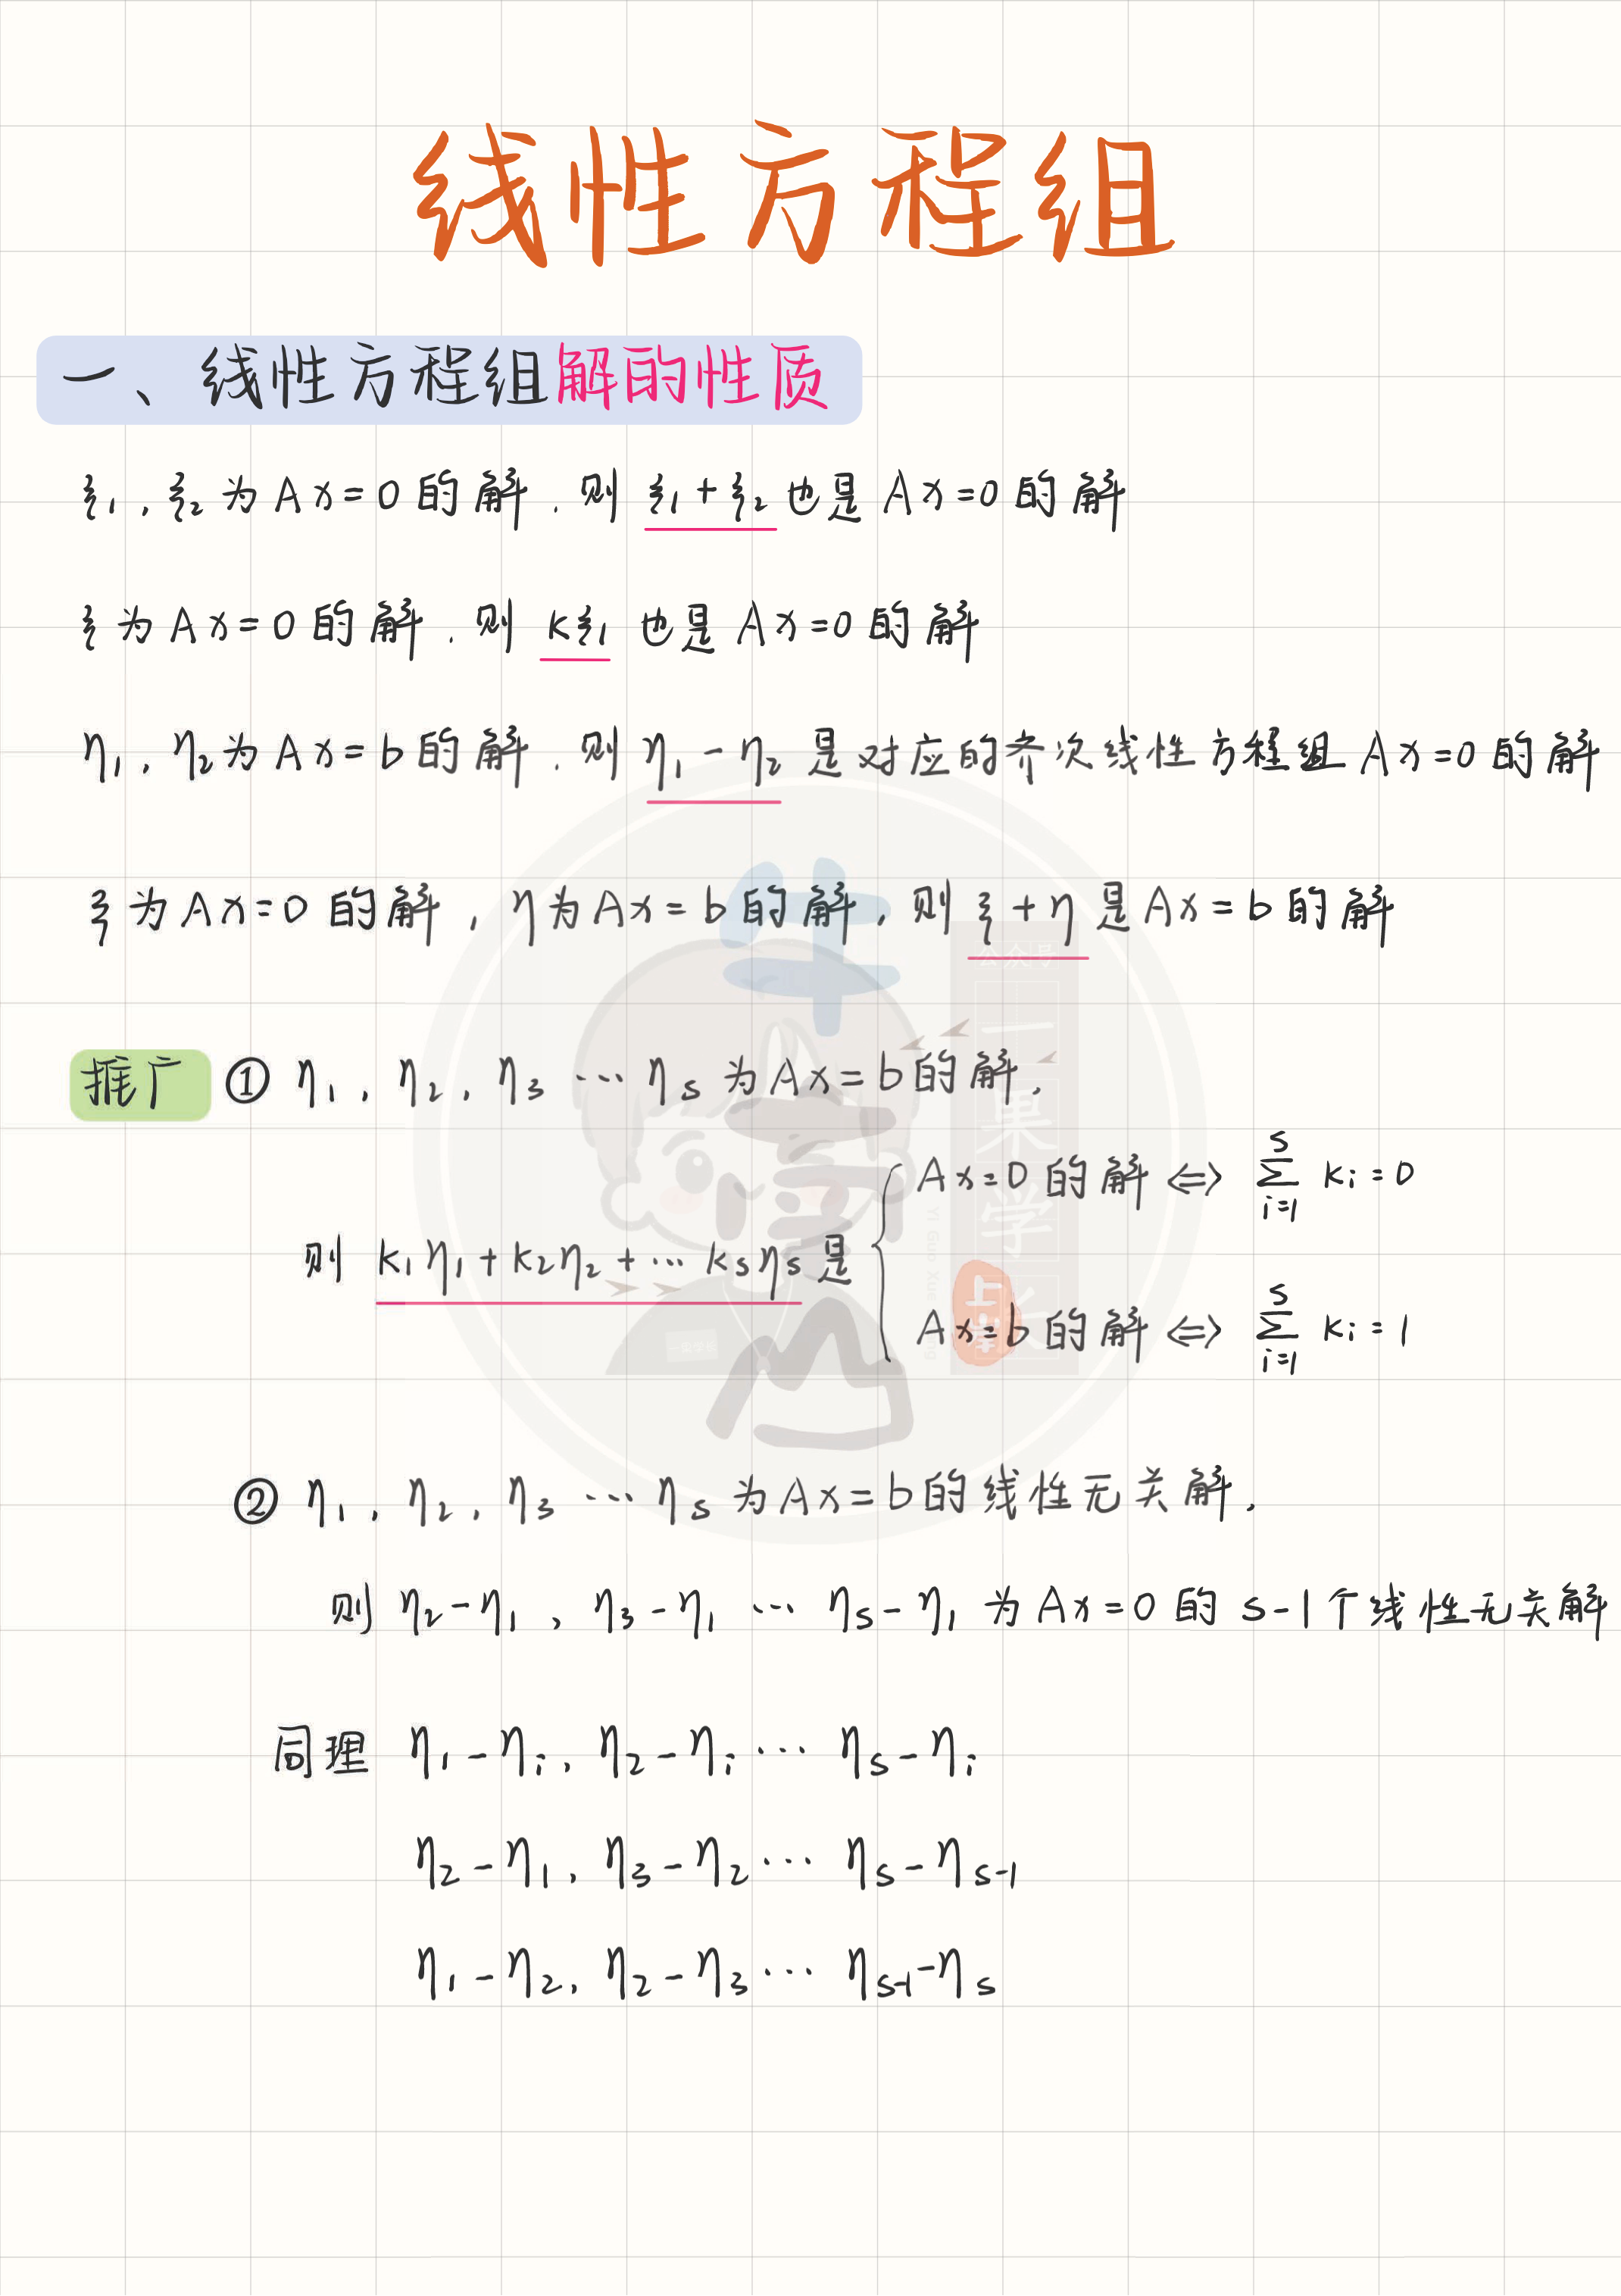 线性方程组
一、线性方程组解的性质
ξ₁,ξ₂为Ax=0的解.则ξ₁+ξ₂也是Ax=0的解
ξ为Ax=0的解.则kξ₁也是Ax=0的解
η₁,η₂为Ax=b的解.则η₁-η₂是对应的齐次线性方程组Ax=0的解
ξ为Ax=0的解,η为Ax=b的解,则ξ+η是Ax=b的解
推广 ① η₁,η₂,η₃…ηₛ为Ax=b的解,
则 k₁η₁+k₂η₂+…kₛηₛ是
{ Ax=0的解⇔ ∑ᵢ₌₁ˢ kᵢ=0
Ax=b的解⇔ ∑ᵢ₌₁ˢ kᵢ=1
② η₁,η₂,η₃…ηₛ为Ax=b的线性无关解,
则 η₂-η₁,η₃-η₁…ηₛ-η₁为Ax=0的s-1个线性无关解
同理 η₁-ηᵢ,η₂-ηᵢ…ηₛ-ηᵢ
η₂-η₁,η₃-η₂…ηₛ-ηₛ₋₁
η₁-η₂,η₂-η₃…ηₛ₋₁-ηₛ
公众号
一果学长
上岸